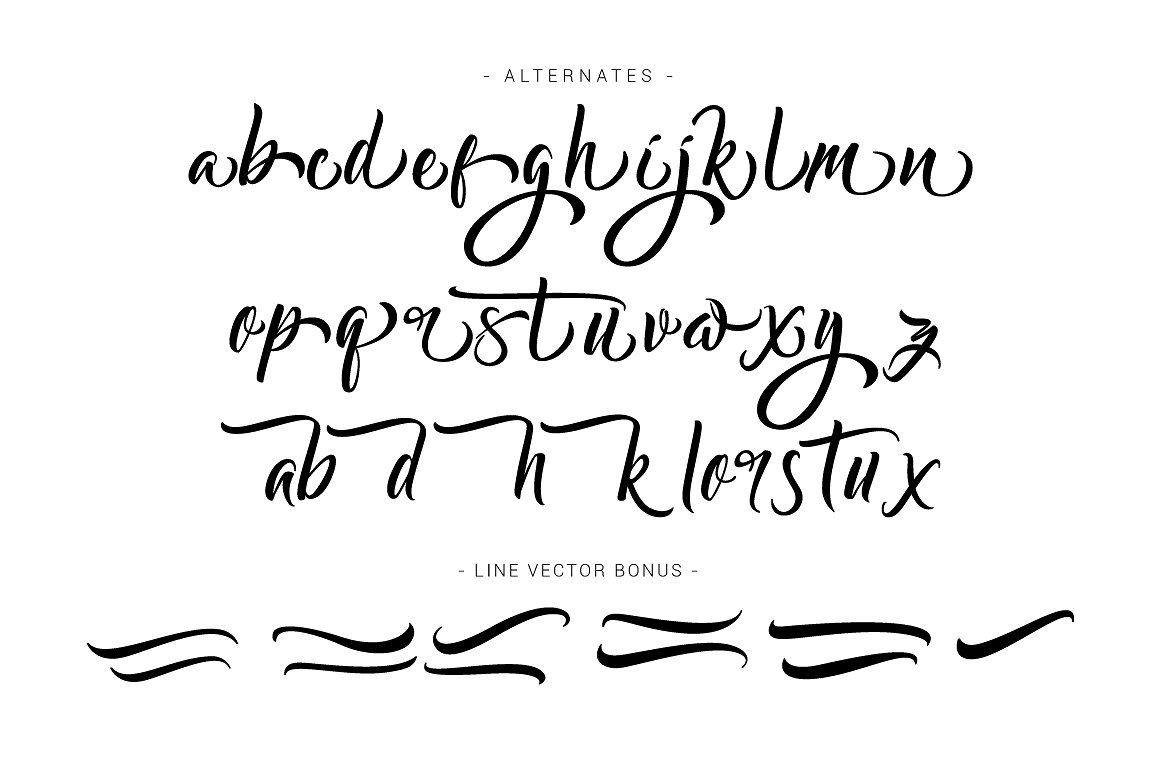 - ALTERNATES -
abcdefghijklmn
opqrstuvwxyz
abdhklorstux
- LINE VECTOR BONUS -